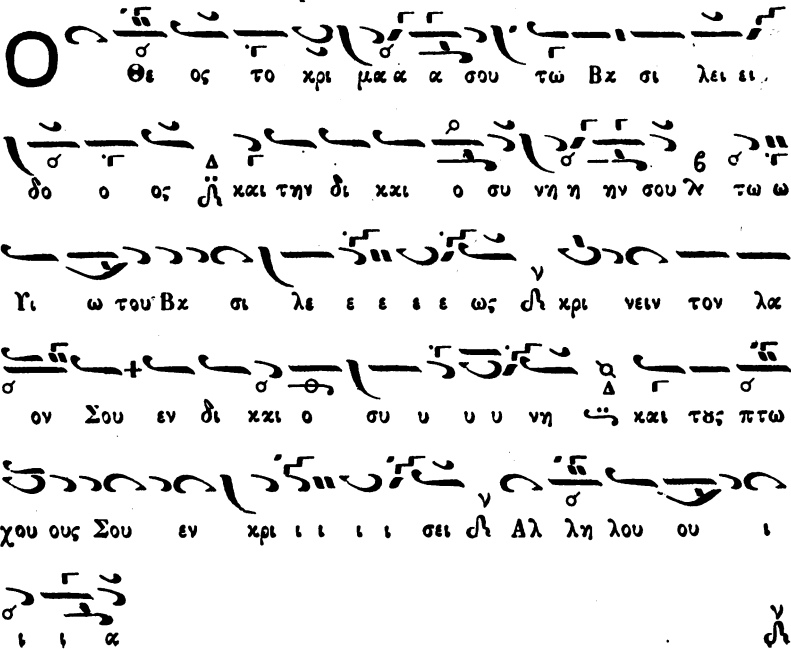 Ο Θε ος το κρι μα α α σου τω Βα σι λει ει
δο ο ος και την δι και ο συ νη η ην σου τω ω
Υι ω του Βα σι λε ε ε ε ε ως κρι νειν τον λα
ον Σου εν δι και ο συ υ υ υ νη και τους πτω
χου ους Σου εν κρι ι ι ι ι σει Αλ λη λου ου ι
ι ι α